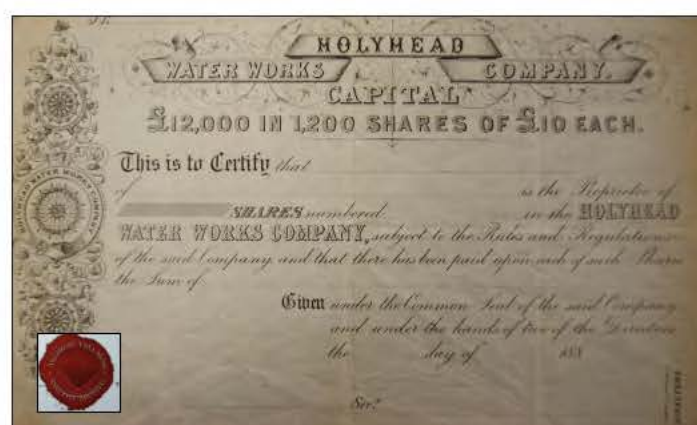 HOLYHEAD
WATER WORKS COMPANY.
CAPITAL
£12,000 IN 1,200 SHARES OF £10 EACH.
This is to Certify that
of is the Proprietor of
SHARES numbered in the HOLYHEAD
WATER WORKS COMPANY, subject to the Rules and Regulations
of the said Company and that there has been paid upon each of such Shares
the Sum of
Given under the Common Seal of the said Company
and under the hands of two of the Directors
the day of 18
HOLYHEAD WATER WORKS COMPANY